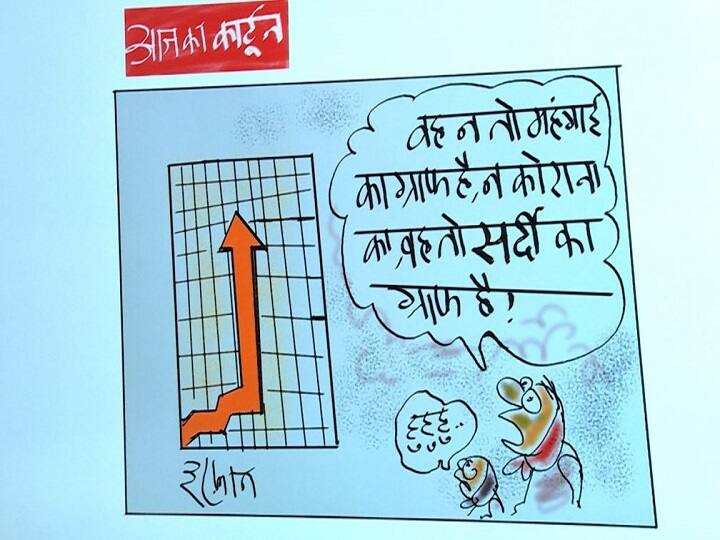 आज का कार्टून
वह न तो महंगाई
का ग्राफ है, न कोराना
का, वह तो सर्दी का
ग्राफ है!
इरफान